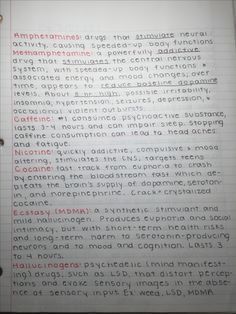 Amphetamines: drugs that stimulate neural
activity, causing speeded-up body functions
Methamphetamine: a powerfully addictive
drug that stimulates the central nervous
system, with speeded-up body functions &
associated energy and mood changes; over
time, appears to reduce baseline dopamine
levels. About 8 hr. high, possible irritability,
insomnia, hypertension, seizures, depression, &
occasional violent outbursts.
Caffeine: #1 consumed psychoactive substance,
lasts 3-4 hours and can impair sleep. Stopping
caffeine consumption can lead to head aches
and fatigue.
Nicotine: quickly addictive, compulsive & mood
altering, stimulates the CNS, targets teens
Cocaine: fast track from euphoria to crash
by entering the bloodstream fast which de-
pleats the brain's supply of dopamine, seroton-
in, and norepinephrine. Crack = crystalized
cocaine.
Ecstasy (MDMA): a synthetic stimulant and
mild hallucinogen. Produces euphoria and social
intimacy, but with short-term health risks
and long-term harm to serotonin-producing
neurons and to mood and cognition. Lasts 3
to 4 hours.
Hallucinogens: psychedelic (mind manifest-
ing) drugs, such as LSD, that distort percep-
tions and evoke sensory images in the abse-
nce of sensory input. Ex: weed, LSD, MDMA